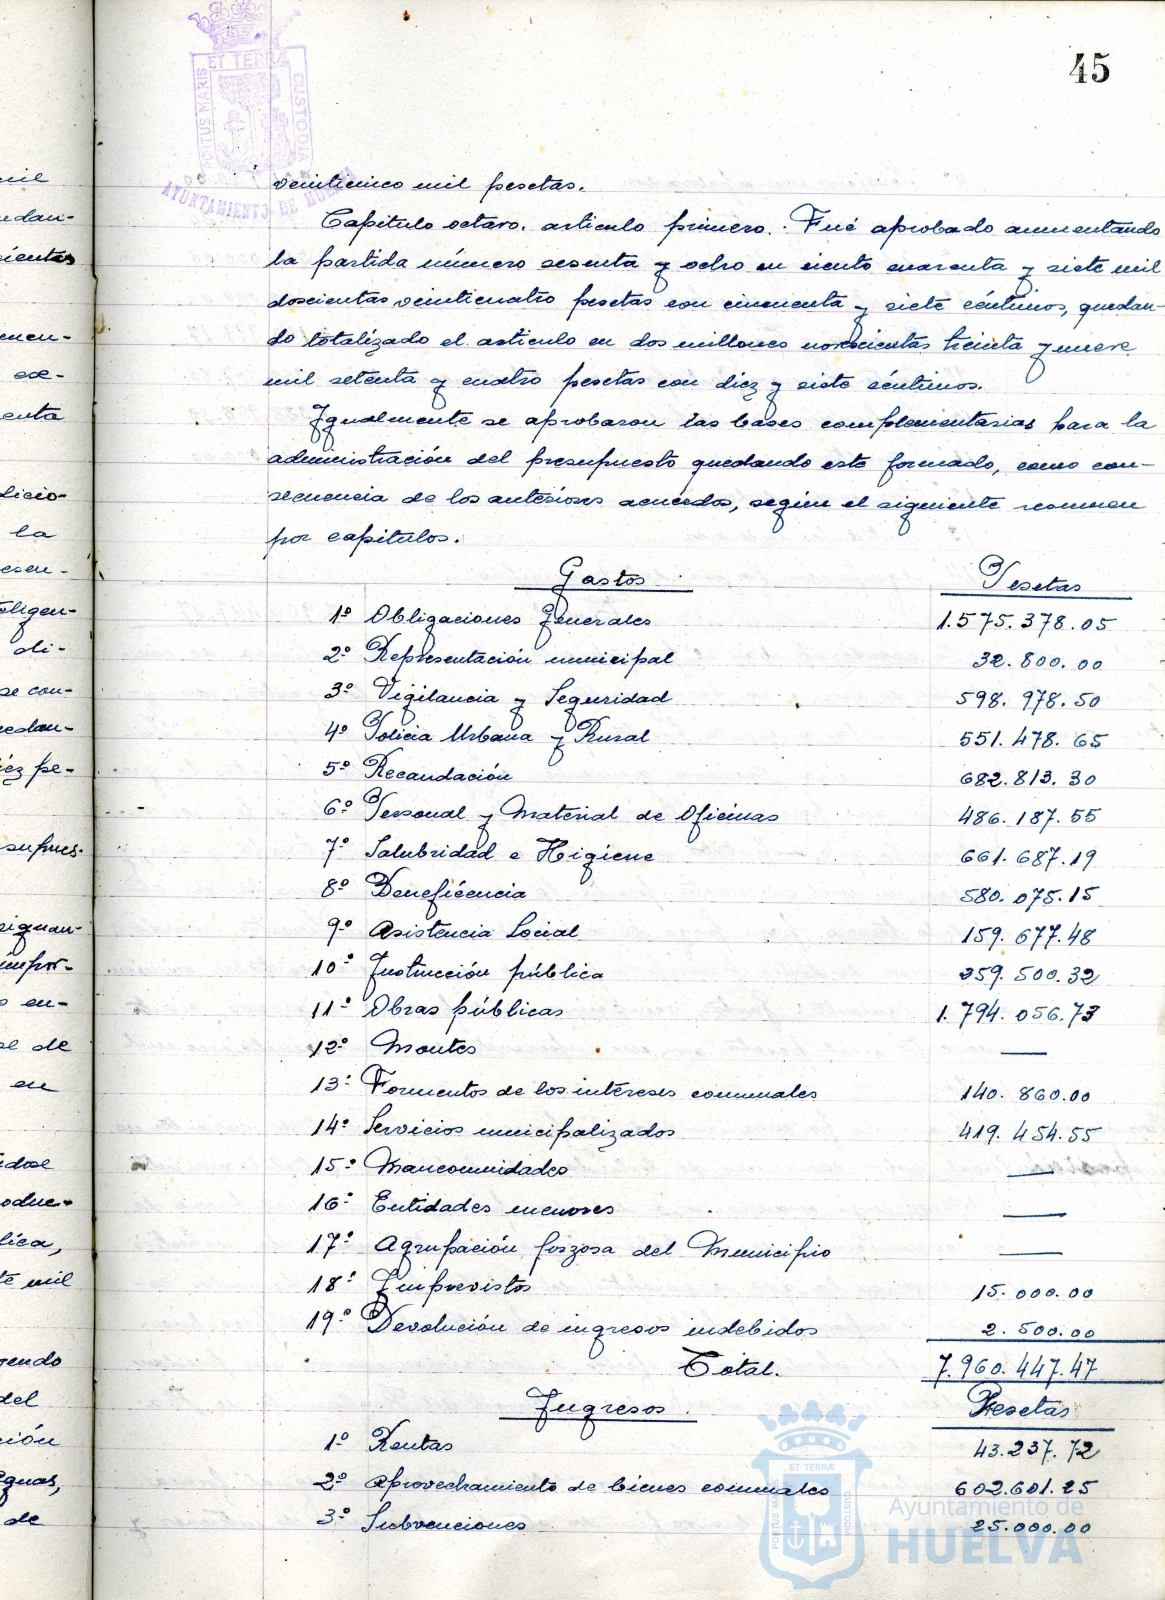 45
ET TERRÆ
PORTUS MARIS
CUSTODIA
AYUNTAMIENTO DE HUELVA
veinticinco mil pesetas.
Capitulo octavo. articulo primero. Fué aprobado aumentando
la partida número sesenta y ocho en ciento cuarenta y siete mil
doscientas veinticuatro pesetas con cincuenta y siete céntimos, quedan-
do totalizado el articulo en dos millones novecientas treinta y nueve
mil setenta y cuatro pesetas con diez y siete céntimos.
Igualmente se aprobaron las bases complementarias para la
administración del presupuesto quedando este formado, como con-
secuencia de los anteriores acuerdos, según el siguiente resumen
por capitulos.
Gastos Pesetas
1º Obligaciones Generales 1.575.378.05
2º Representación municipal 32.800.00
3º Vigilancia y Seguridad 598.978.50
4º Policia Urbana y Rural 551.478.65
5º Recaudación 682.813.30
6º Personal y Material de Oficinas 486.187.55
7º Salubridad e Higiene 661.687.19
8º Beneficencia 580.075.15
9º Asistencia Social 159.677.48
10º Instrucción pública 259.500.32
11º Obras públicas 1.794.056.73
12º Montes —
13º Formentos de los intereses comunales 140.860.00
14º Servicios municipalizados 419.454.55
15º Mancomunidades —
16º Entidades menores —
17º Agrupación forzosa del Municipio —
18º Imprevistos 15.000.00
19º Devolución de ingresos indebidos 2.500.00
Total. 7.960.447.47
Ingresos. Pesetas
1º Rentas 43.237.72
2º Aprovechamiento de bienes comunales 602.601.25
3º Subvenciones 25.000.00
ET TERRÆ
PORTUS MARIS
CUSTODIA
Ayuntamiento de
HUELVA